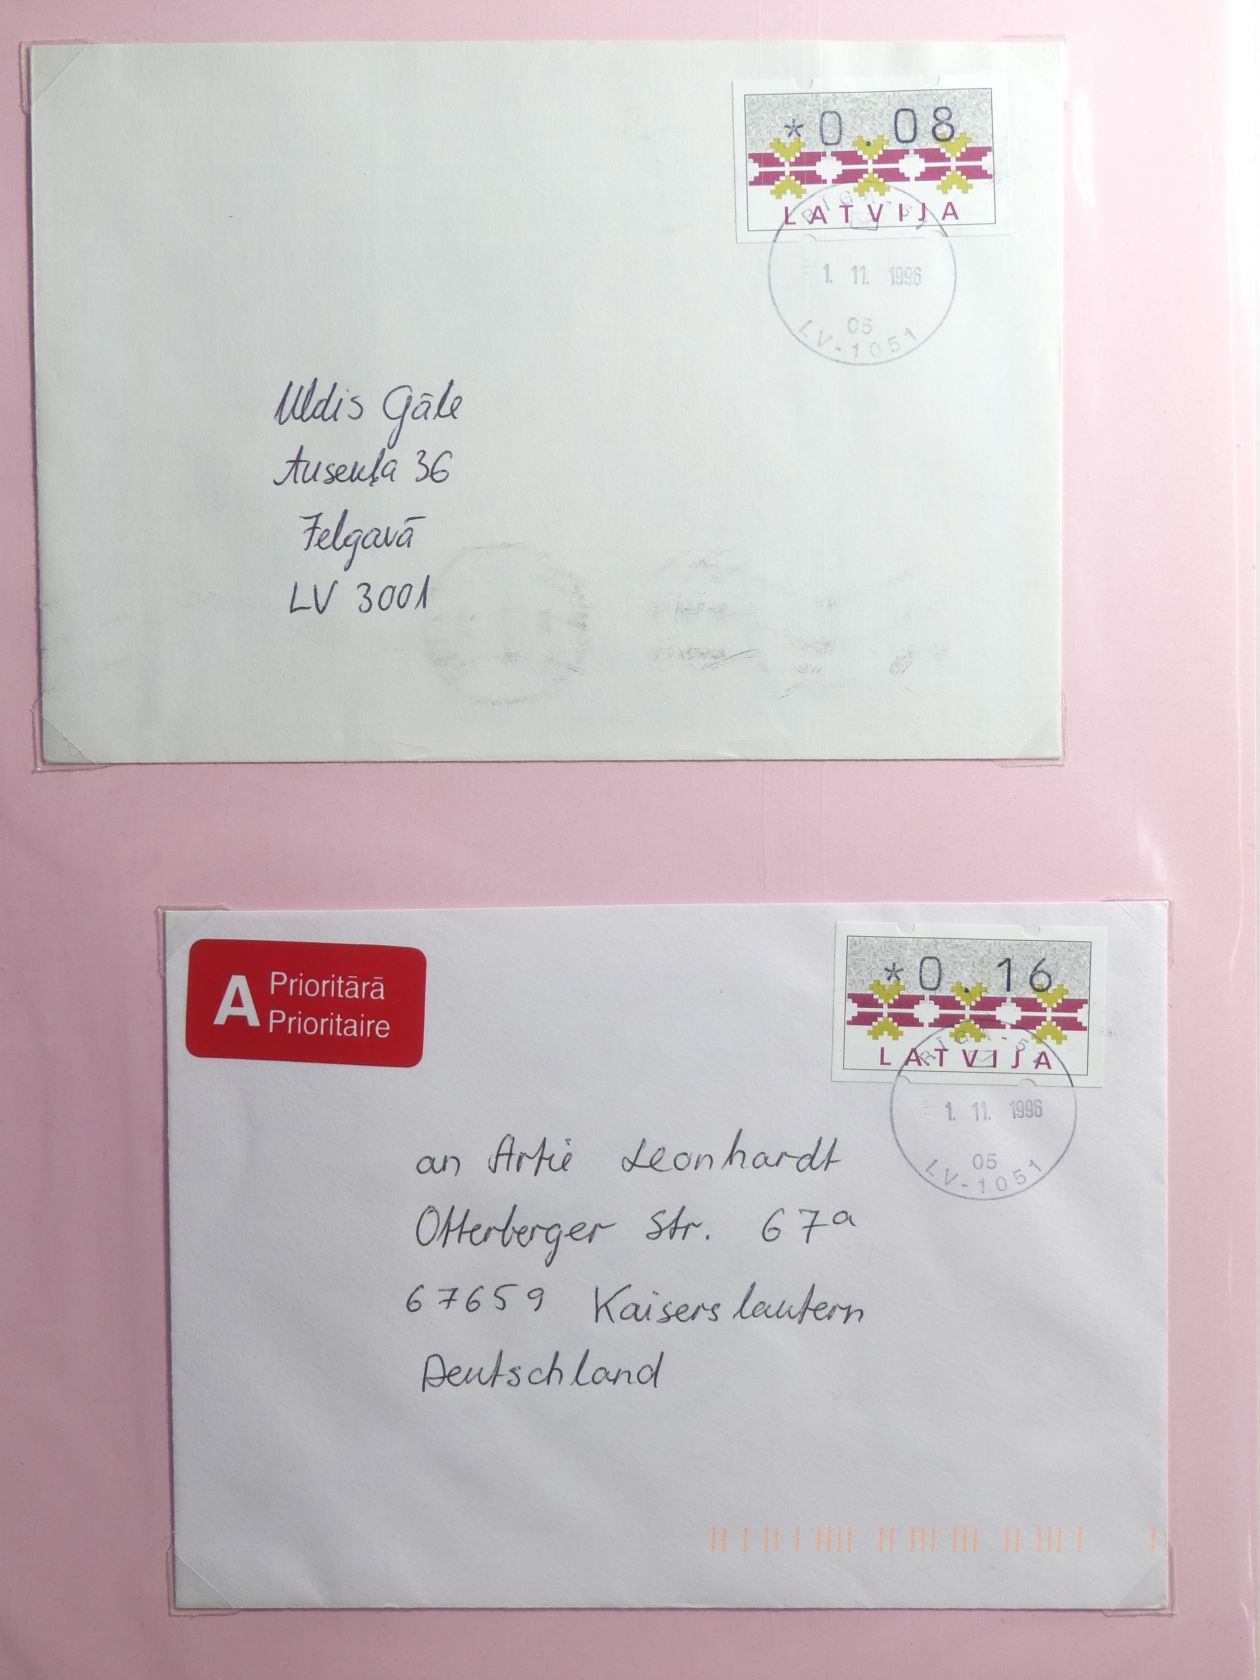 *0.08
LATVIJA
RĪGA-51
1. 11. 1996
05
LV-1051
Uldis Gāle
Ausekļa 36
Jelgavā
LV 3001
A Prioritārā
Prioritaire
*0.16
LATVIJA
RĪGA-51
1. 11. 1996
05
LV-1051
an Artie Leonhardt
Otterberger Str. 67a
67659 Kaiserslautern
Deutschland